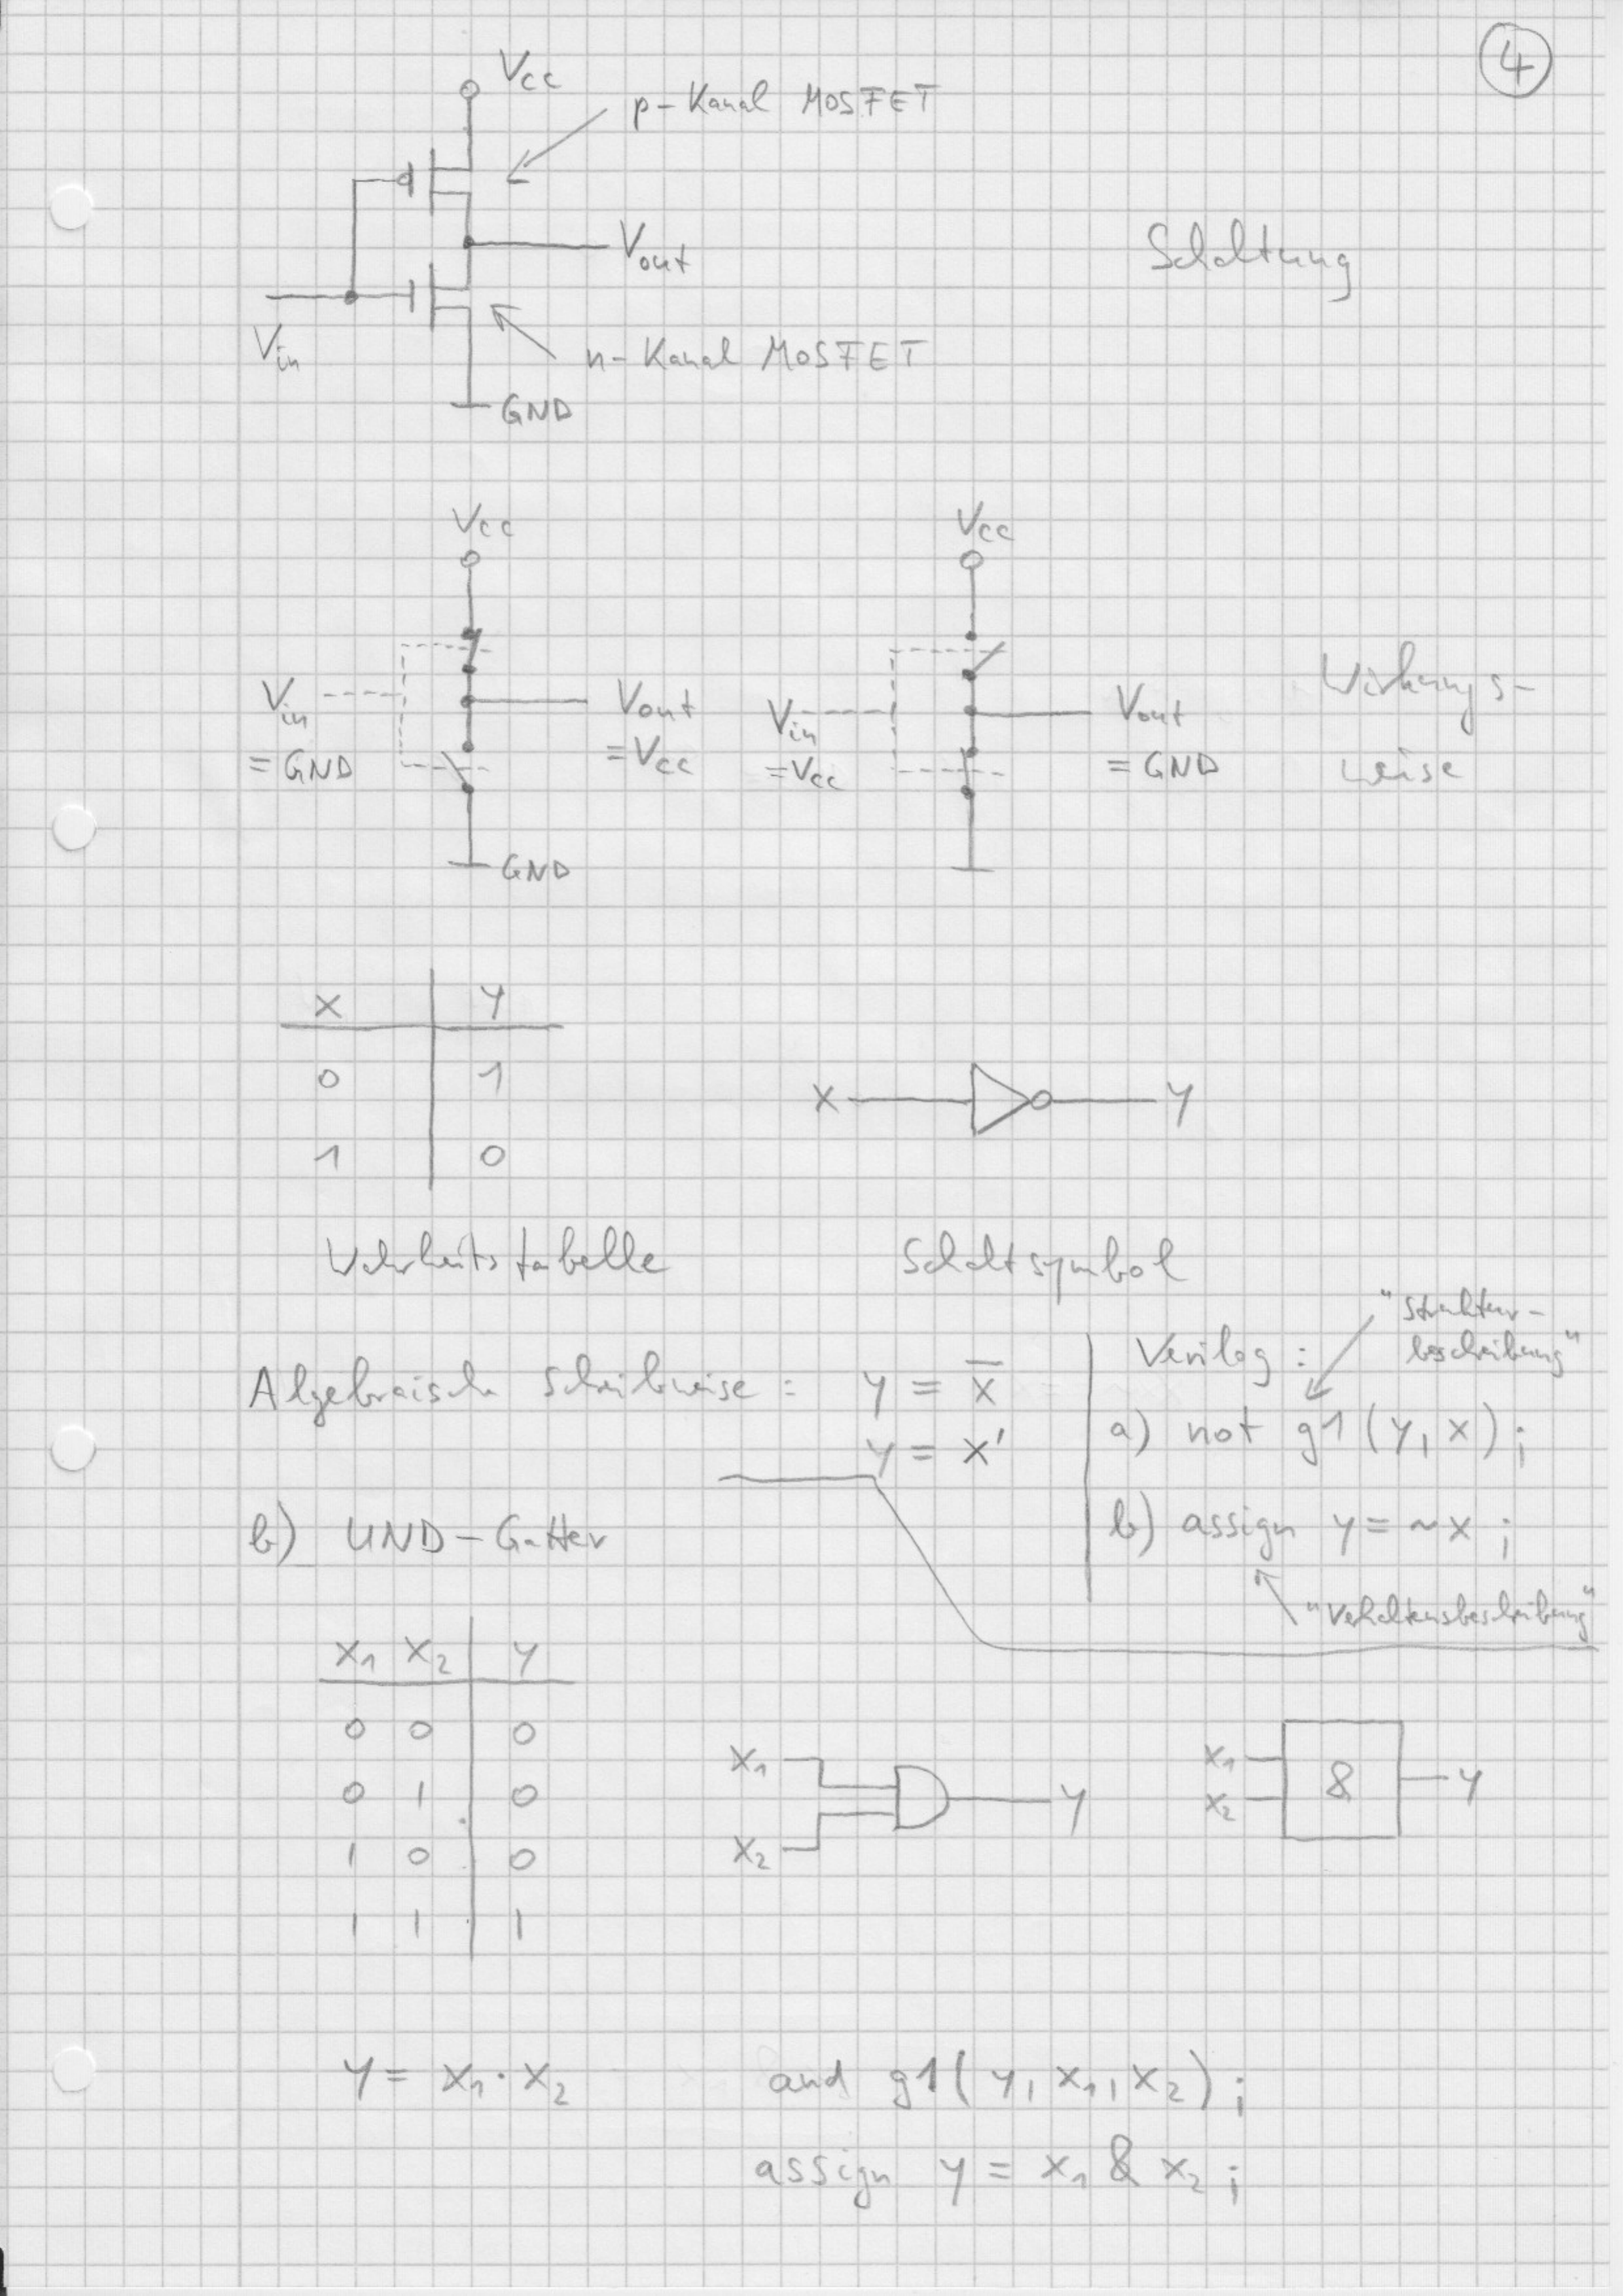 4
Vcc
p-Kanal MOSFET
Vout
Schaltung
Vin
n-Kanal MOSFET
GND
Vcc
Vcc
Vin
= GND
Vout
= Vcc
GND
Vin
= Vcc
Vout
= GND
Wirkungs-
weise
x y
0 1
1 0
x y
Wahrheitstabelle
Schaltsymbol
Algebraische Schreibweise : y = x̅
y = x'
Verilog :
"Struktur-
beschreibung"
a) not g1 (y, x) ;
b) assign y = ~x ;
"Verhaltensbeschreibung"
b) UND-Gatter
x₁ x₂ y
0 0 0
0 1 0
1 0 0
1 1 1
x₁
x₂
y
x₁
x₂
&
y
y = x₁ · x₂
and g1 ( y, x₁, x₂ ) ;
assign y = x₁ & x₂ ;